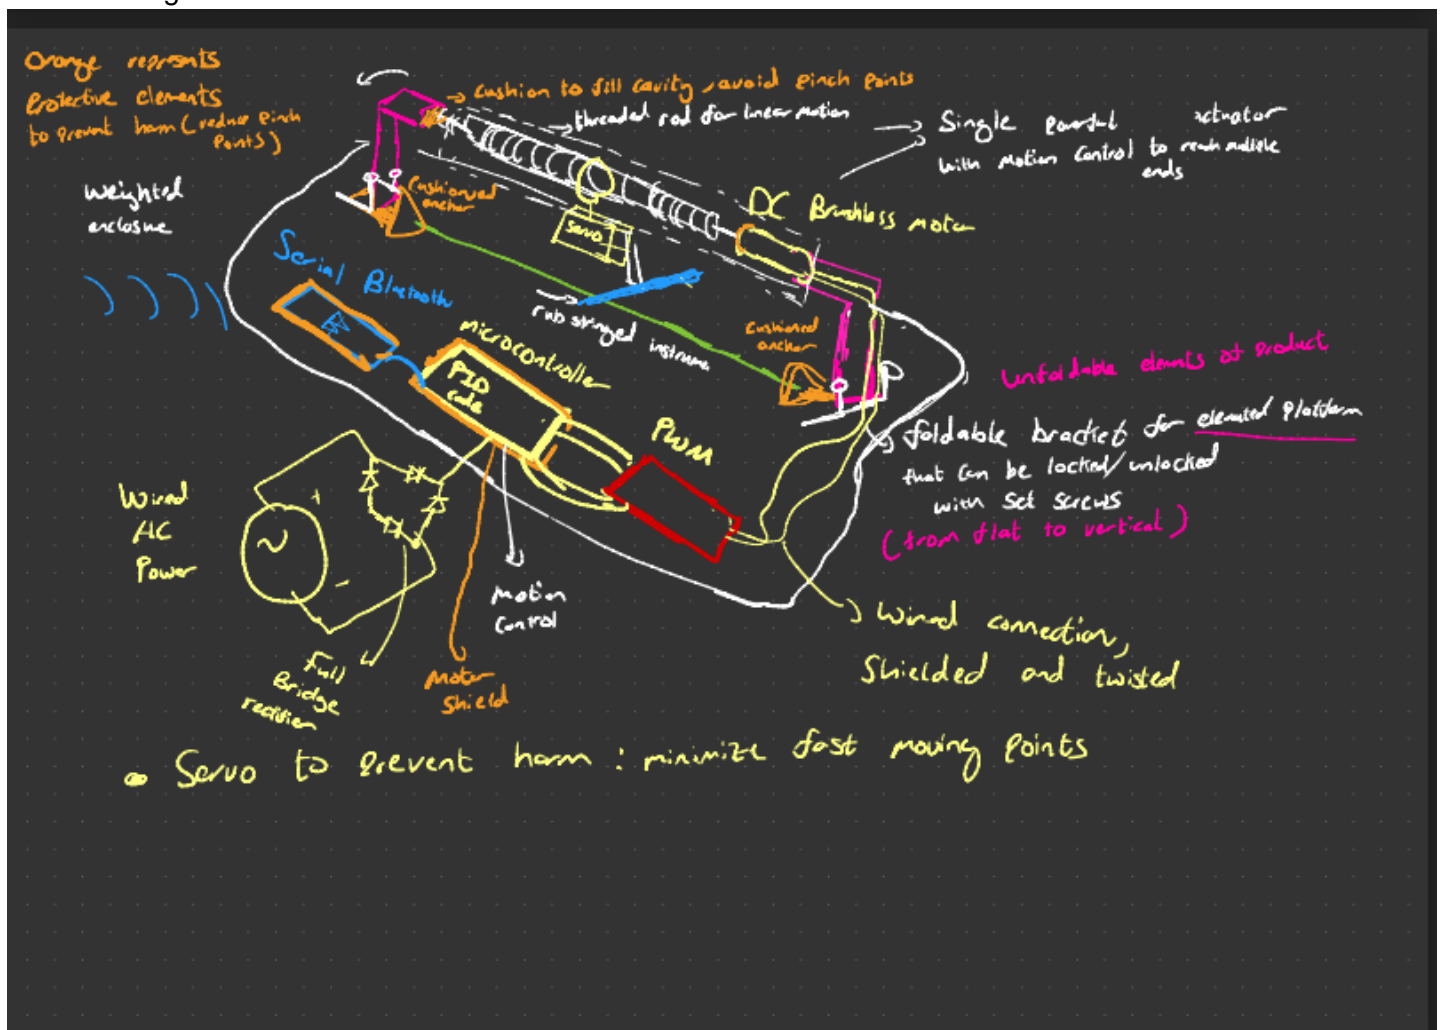 Orange represents
Protective elements
to prevent harm (reduce pinch
Points)
Cushion to fill cavity, avoid pinch points
threaded rod for linear motion
Single powerful actuator
with Motion Control to reach multiple
ends
Weighted
enclosure
Cushioned
anchor
DC Brushless motor
Servo
Serial Bluetooth
rub stringed instrume
microcontroller
PID
code
Cushioned
anchor
Unfoldable elements of product
foldable bracket for elevated platform
that can be locked/unlocked
with set screws
(from flat to vertical)
PWM
Wired
AC
Power
+
-
Motion
Control
Motor
Shield
Full
Bridge
rectifier
Wired connection,
Shielded and twisted
• Servo to prevent harm : minimize fast moving points